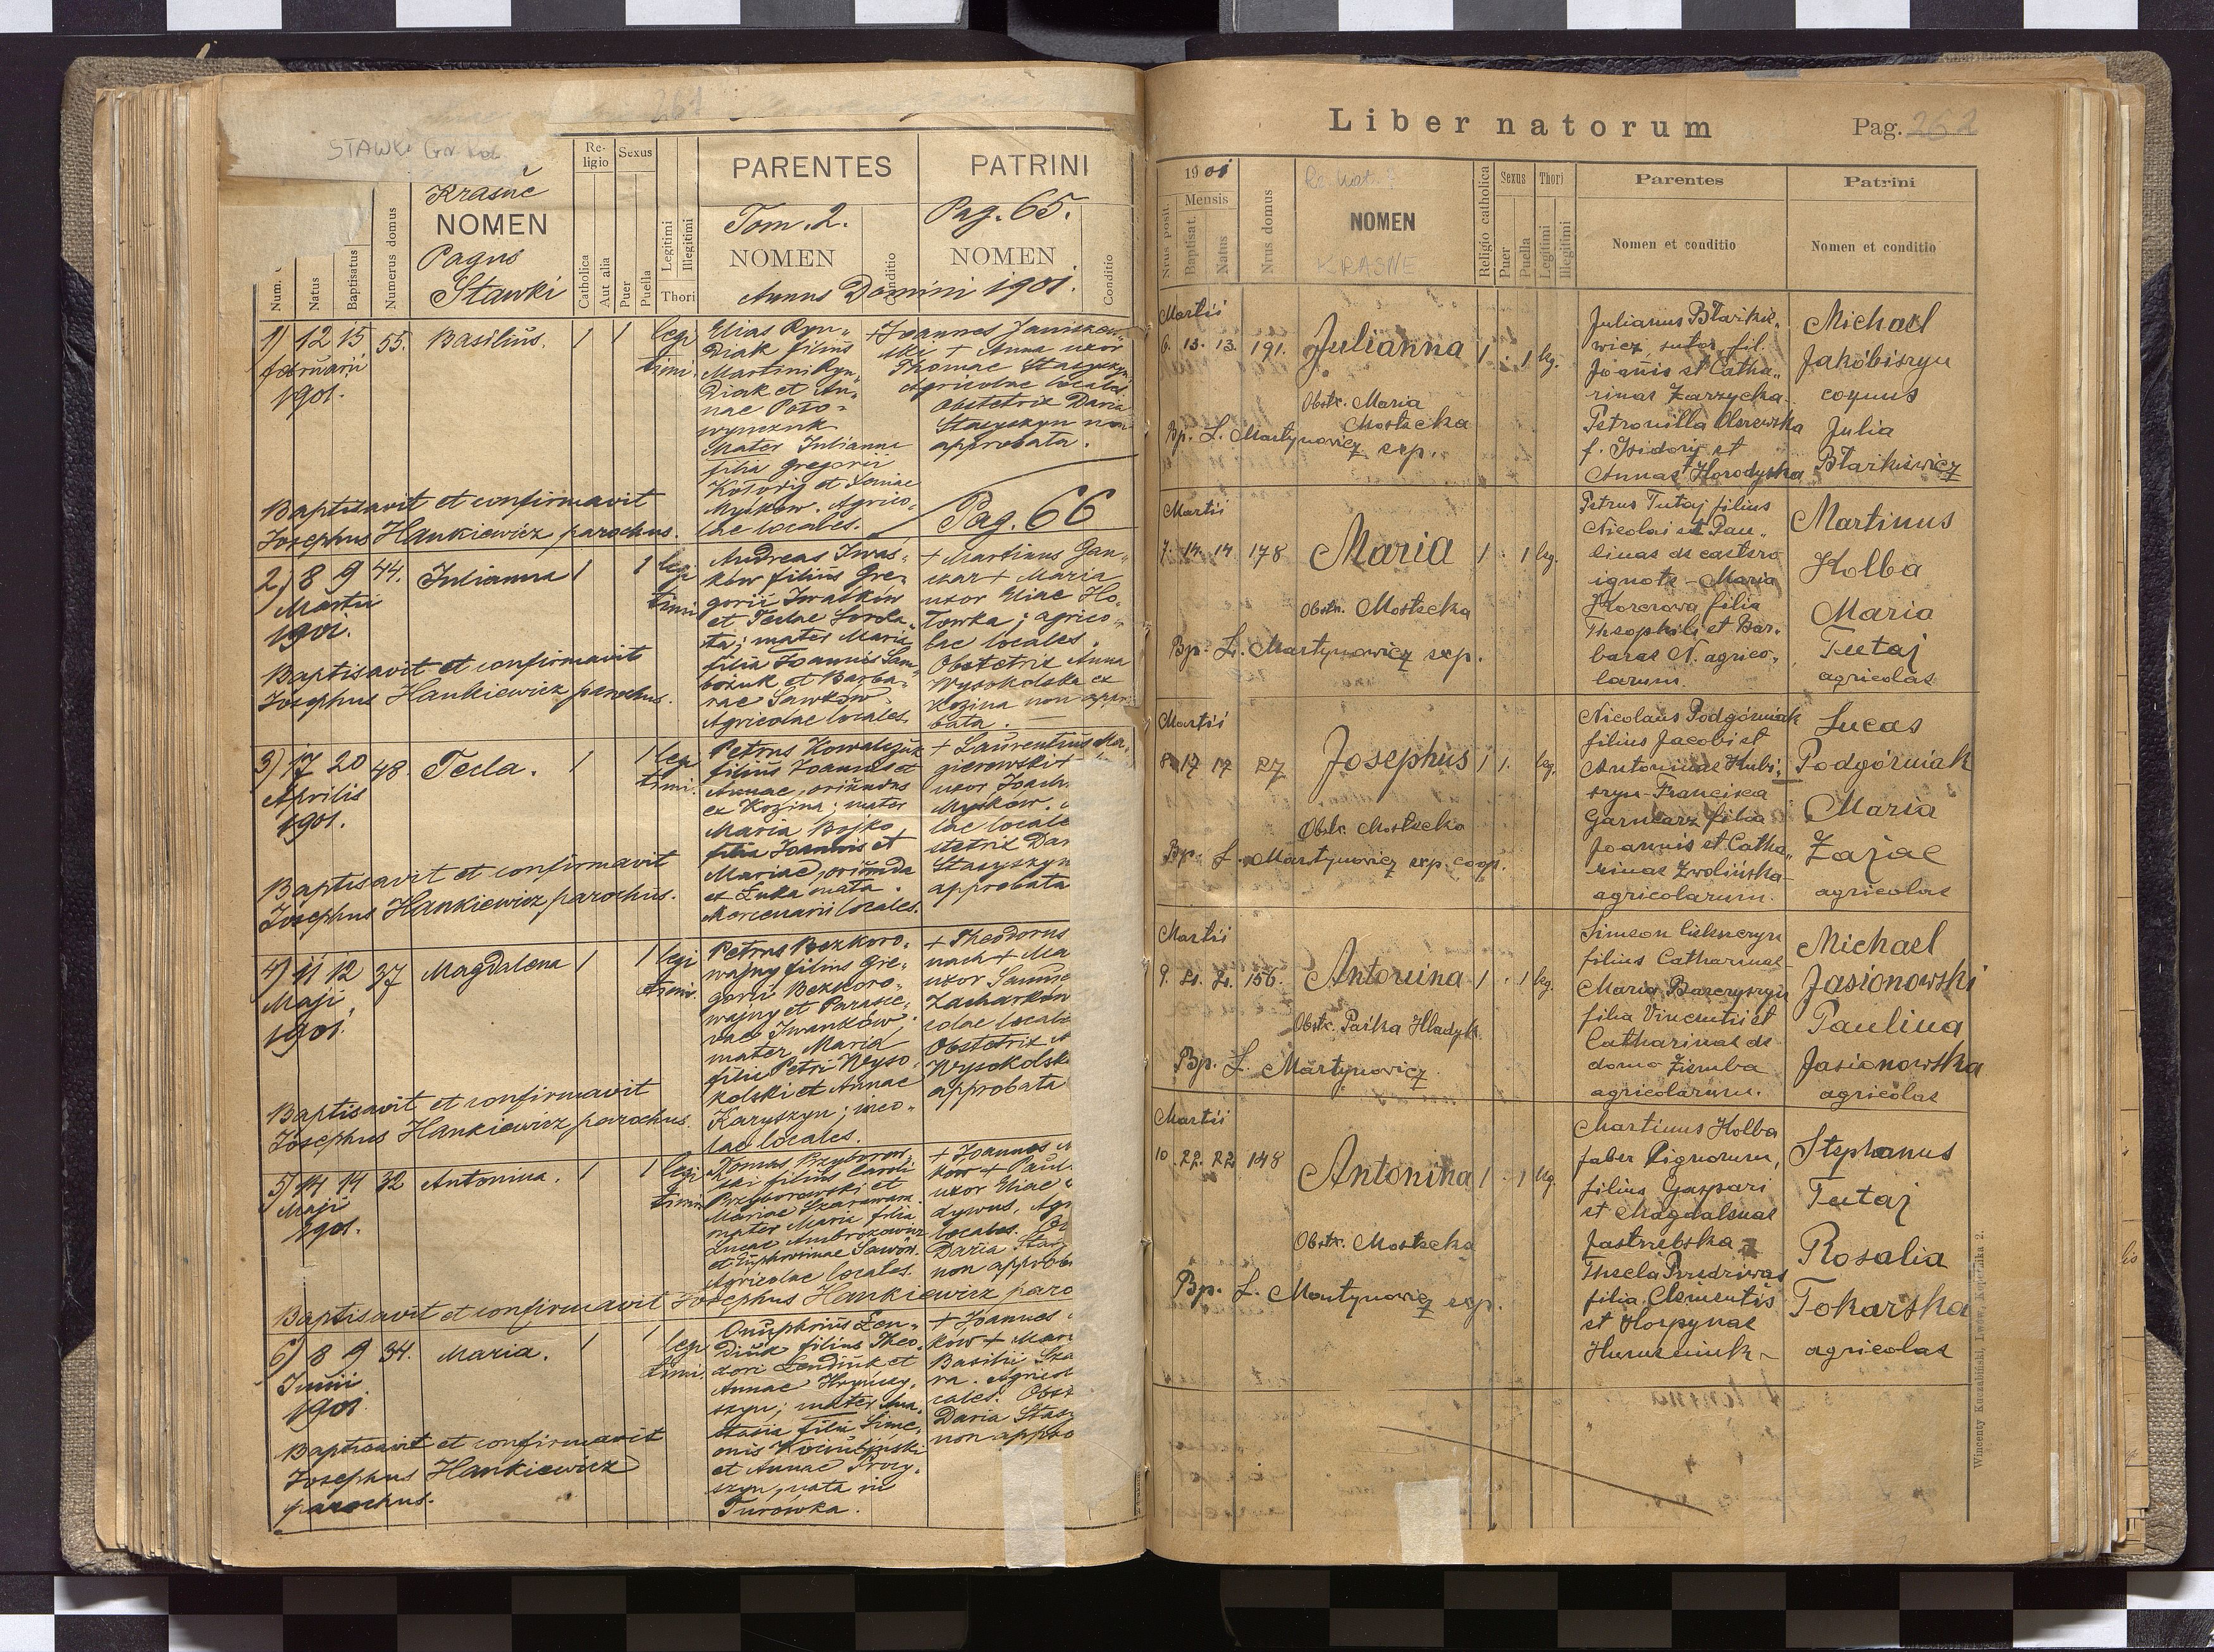 261
STAWKI
Krasne
Num.
Natus
Baptisatus
Numerus domus
NOMEN
Pagus
Stawki
Religio
Catholica
Aut alia
Sexus
Puer
Puella
Legitimi
Illegitimi
Thori
PARENTES
Tom. 2.
NOMEN
Conditio
PATRINI
Pag. 65.
NOMEN
Conditio
Annus Domini 1901.
1) 12 15 55. Basilius. 1 1 legi
februarii
timi.
1901.
Elias Ryn-
diak filius
Martini Ryn-
diak et An-
nae
Mater Julianna
filia Gregorii
et
Myśków. Agrico-
lae locales.
+ Joannes Janiszew-
ski + Anna uxor
Thomae Staszyszyn
Agricolae locales
Obstetrix Daria
Staszyszyn non
approbata.
Baptisavit et confirmavit
Josephus Hankiewicz parochus.
Pag. 66
2) 8 9 44. Julianna 1 1 legi
Martii
timi
1901.
Andreas Iwaś-
ków filius Gre-
gorii Iwaśków
et Teclae
mater Maria
filia Joannis Sam-
bożuk et Barba-
rae Sawków
Agricolae locales.
+ Martinus Gan-
czar + Maria
uxor Eliae Ho-
; agrico-
lae locales.
Obstetrix Anna
Wysokolska ex
Kozina non appro
bata.
Baptisavit et confirmavit
Josephus Hankiewicz parochus.
3) 17 20 48. Tecla. 1 1 legi
Aprilis
timi.
1901.
Petrus Kowalczuk
filius Joannis et
Annae, oriundus
ex Kozina; mater
Maria Bojko
filia Joannis et
Mariae, oriunda
ex Łuka mała.
Mercenarii locales.
+ Laurentius Ma-
gierowski +
uxor Joach
Myśków.
lae locale
stetrix Dar
Staszyszyn
approbata
Baptisavit et confirmavit
Josephus Hankiewicz parochus.
4) 11 12 37 Magdalena 1 1 legi
Maji
timi.
1901.
Petrus Bezkoro-
wajny filius Gre-
gorii Bezkoro-
wajny et Parasce-
vae Iwanków;
mater Maria
filia Petri Wyso-
kolski et Annae
Karyszyn; inco-
lae locales.
+ Theodorus
nach + Ma
uxor
Zacharków
colae locale
Obstetrix A
Wysokolsk
approbata
Baptisavit et confirmavit
Josephus Hankiewicz parochus.
5) 14 14 32 Antonina. 1 1 legi
Maji
timi.
1901.
Tomas Przyborow-
ski filius Caroli
Przyborowski et
Mariae
mater Maria filia
Lucae Ambrozowicz
et Euphrosinae
Agricolae locales.
+ Joannes
ków + Paul
uxor Eliae
dywus. Agr
locales. Ob
Daria Stas
non approb
Baptisavit et confirmavit Josephus Hankiewicz paro
6) 8 9 34. Maria. 1 1 legi
Junii
timi.
1901.
Onuphrius Len-
diuk filius Theo-
dori Lendiuk et
Annae Hryńczy-
szyn; mater Ana-
stasia filia Sime-
onis
et Annae Procy-
szyn, nata in
Turówka.
+ Joannes
ków + Mar
Basilii
ra. Agricol
cales. Obst
Daria Stasz
non appro
Baptisavit et confirmavit
Josephus Hankiewicz
parochus.
Liber natorum
Pag. 262
1901
Mensis
Nrus posit.
Baptisat.
Natus
Nrus domus
NOMEN
KRASNE
Religio catholica
Sexus
Puer
Puella
Thori
Legitimi
Illegitimi
Parentes
Nomen et conditio
Patrini
Nomen et conditio
Martii
6. 13. 13. 191. Julianna 1 . 1 leg.
Obstr. Maria
Mostecka
Bp. L. Martynowicz exp.
Julianus Błażkie-
wicz, sutor, fil.
Joannis et Catha-
rinae Zarzycka.
Petronilla Olszewska
f. Isidori et
Annae Horodyska
Michael
Jakóbiszyn
coquus
Julia
Błażkiewicz
Martii
7. 14. 14 178 Maria 1 . 1 leg.
Obstr. Mostecka
Bp. L. Martynowicz exp.
Petrus Tutaj filius
Nicolai et Pau-
linae de caetero
ignota - Maria
filia
Theophili et Bar-
barae N. agrico-
larum.
Martinus
Kolba
Maria
Tutaj
agricolae
Martii
8. 17 17 27 Josephus 1 1. leg.
Obstr. Mostecka
Bp. L. Martynowicz exp. coop.
Nicolaus Podgórniak
filius Jacobi et
Antoninae Kubi-
szyn - Francisca
Garncarz filia
Joannis et Catha-
rinae Zwolińska -
agricolarum.
Lucas
Podgórniak
Maria
Zając
agricolae
Martii
9. 21. 21. 156. Antonina 1 . 1 leg.
Obstr. Paśka Hladyk.
Bp. L. Martynowicz.
Simeon
filius Catharinae -
Maria
filia Vincentii et
Catharinae de
domo Ziemba
agricolarum.
Michael
Jasionowski
Paulina
Jasionowska
agricolae
Martii
10. 22. 22 148 Antonina 1 . 1 leg.
Obstr. Mostecka
Bp. L. Martynowicz exp.
Martinus Kolba
faber lignorum,
filius Gaspari
et Magdalenae
Jastrzebska -
Thecla
filia Clementis
et Horpynae
Stephanus
Tutaj
Rosalia
Tokarska
agricolae
Wincenty Kuczabiński, Lwów, Kopernika 2.